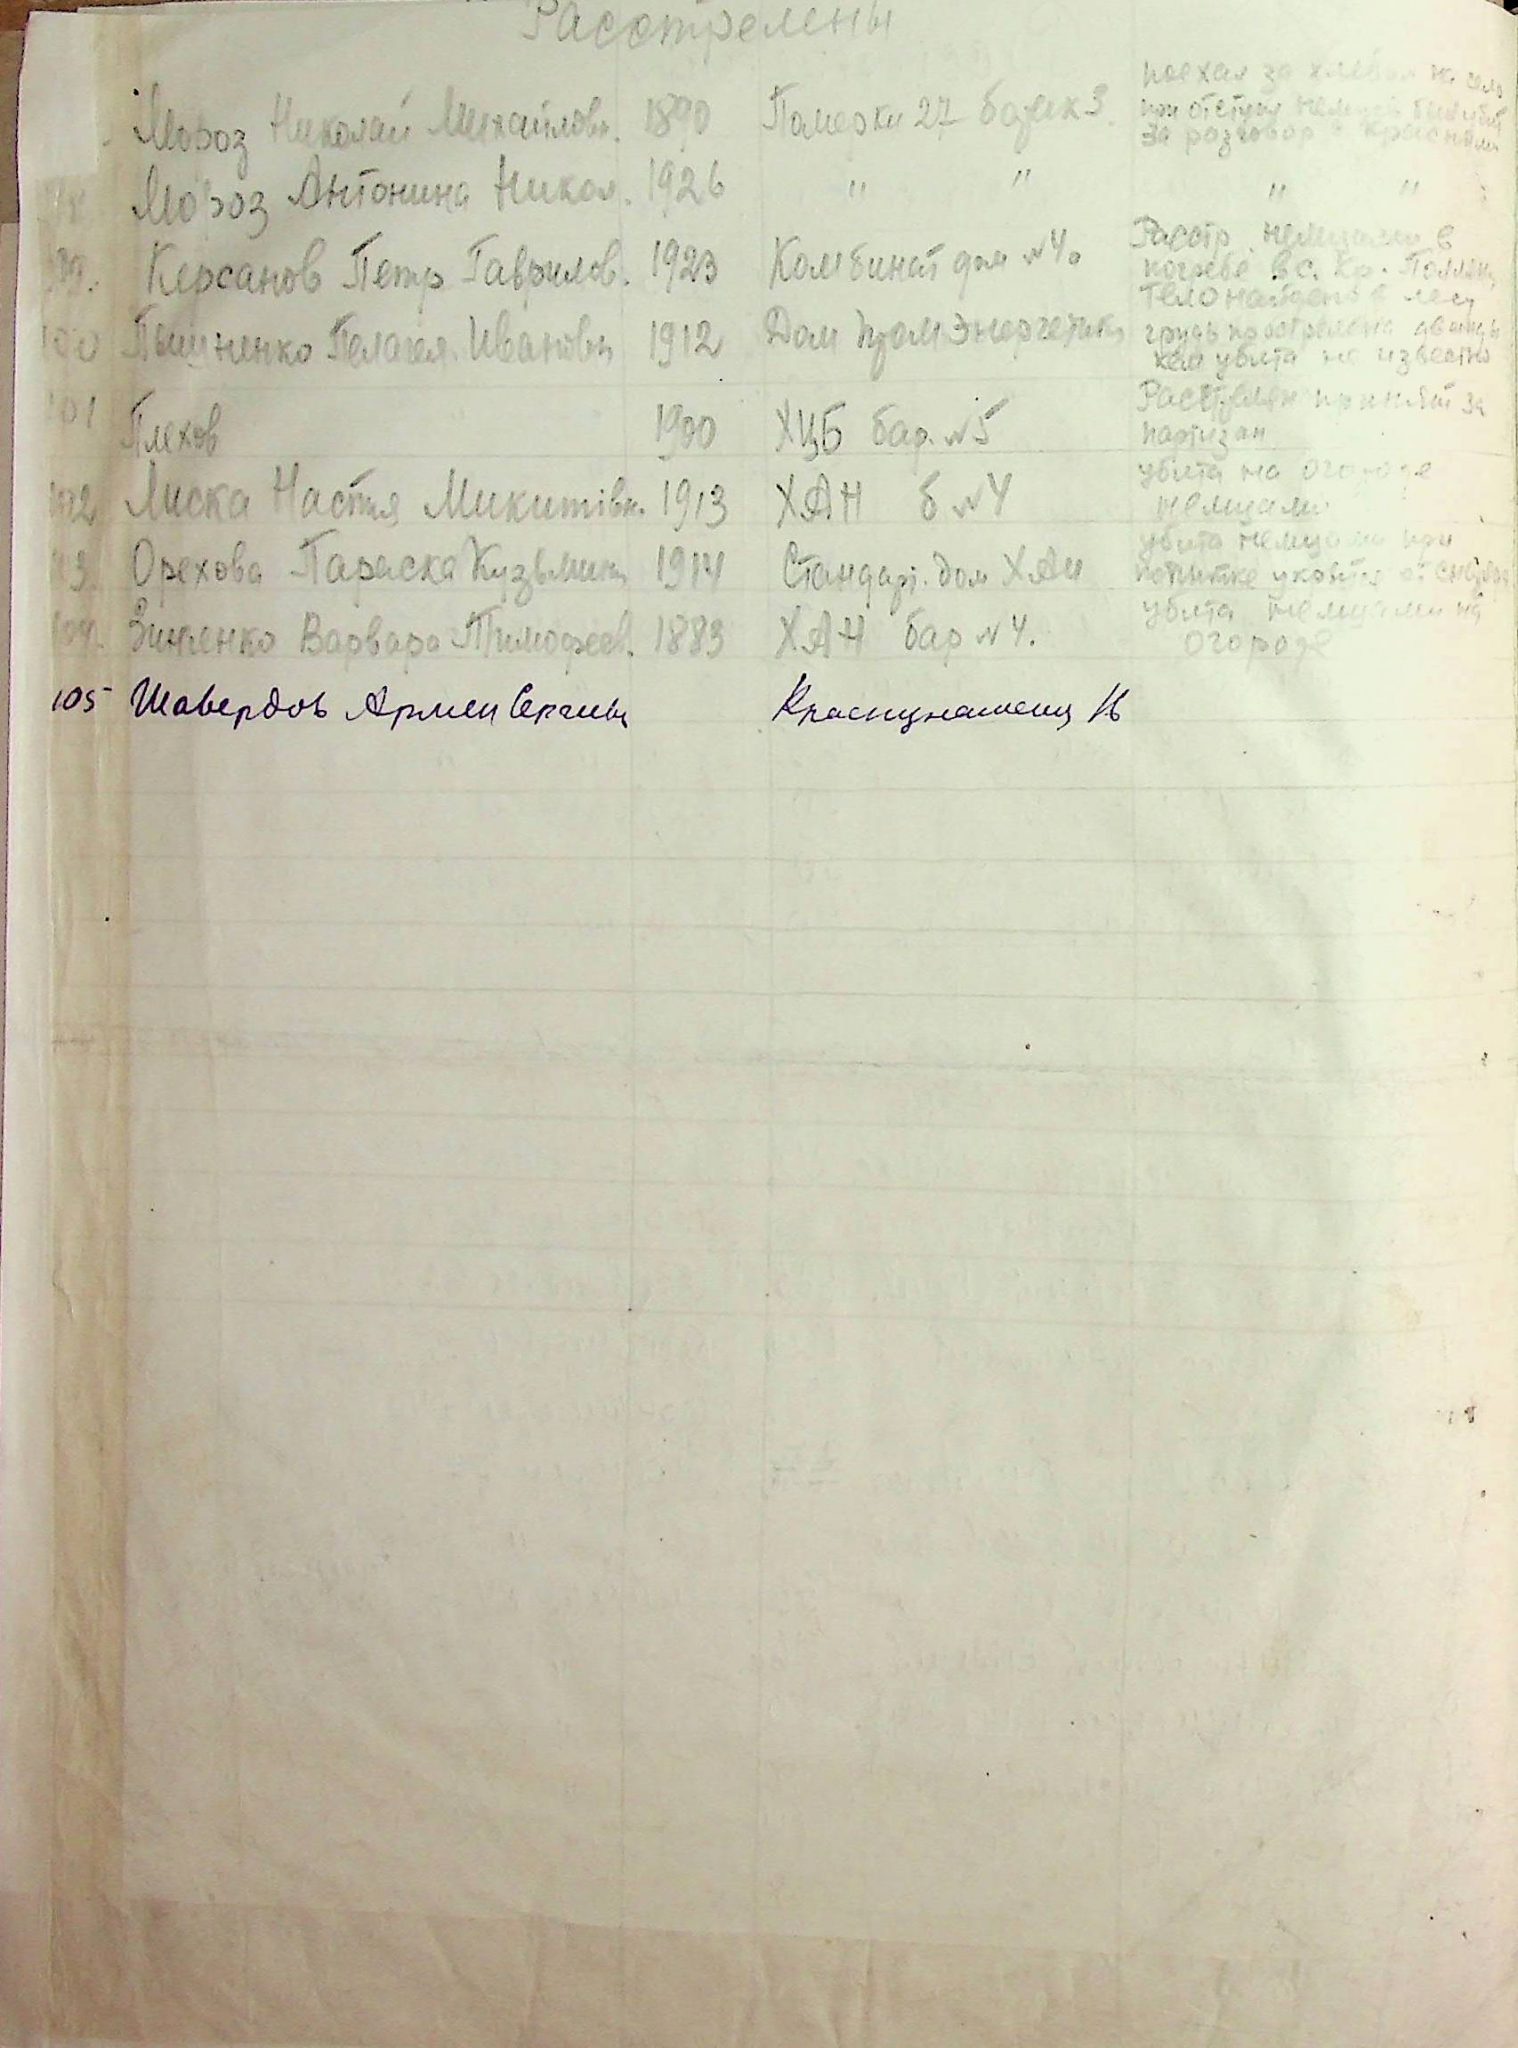 Расстрелены
Мороз Николай Михайлови. 1890 Померки 27 барак 3.
поехал за хлебом на село
при отступл немцев был убит
за разговор с красными
Мороз Антонина Никол. 1926 " " " "
99. Керсанов Петр Гаврилов. 1923 Комбинат дом №40
Расстр. немцами в
погребе в с. Кр. Поляна
100 Пелагея Ивановн 1912 Дом ПромЭнергетики
Тело найдено в лесу
грудь прострелена дважды
кем убита не известно
101 Плехов 1900 ХЦБ бар. №5
Расстрелян принят за
партизан
102 Лиска Настя Микитівн. 1913 ХАН б №4
убита на огороде
немцами
103. Орехова Параска Кузьмин 1914 Стандарт. дом ХАИ
убита немцами при
попытке укрытся от
104. Зинченко Варвара Тимофеев. 1883 ХАН бар №4.
убита немцами на
огороде
105 Шавердов Армен Сергеев